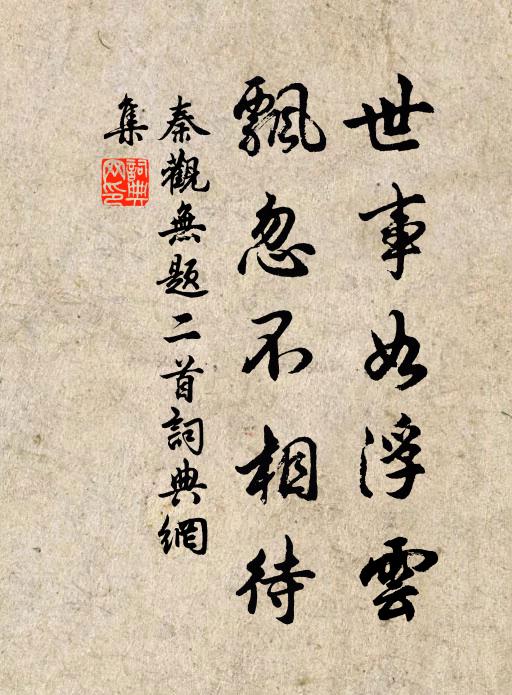 世事如浮雲
飄忽不相待
秦觀無題二首詞典網
集
詞典
网印